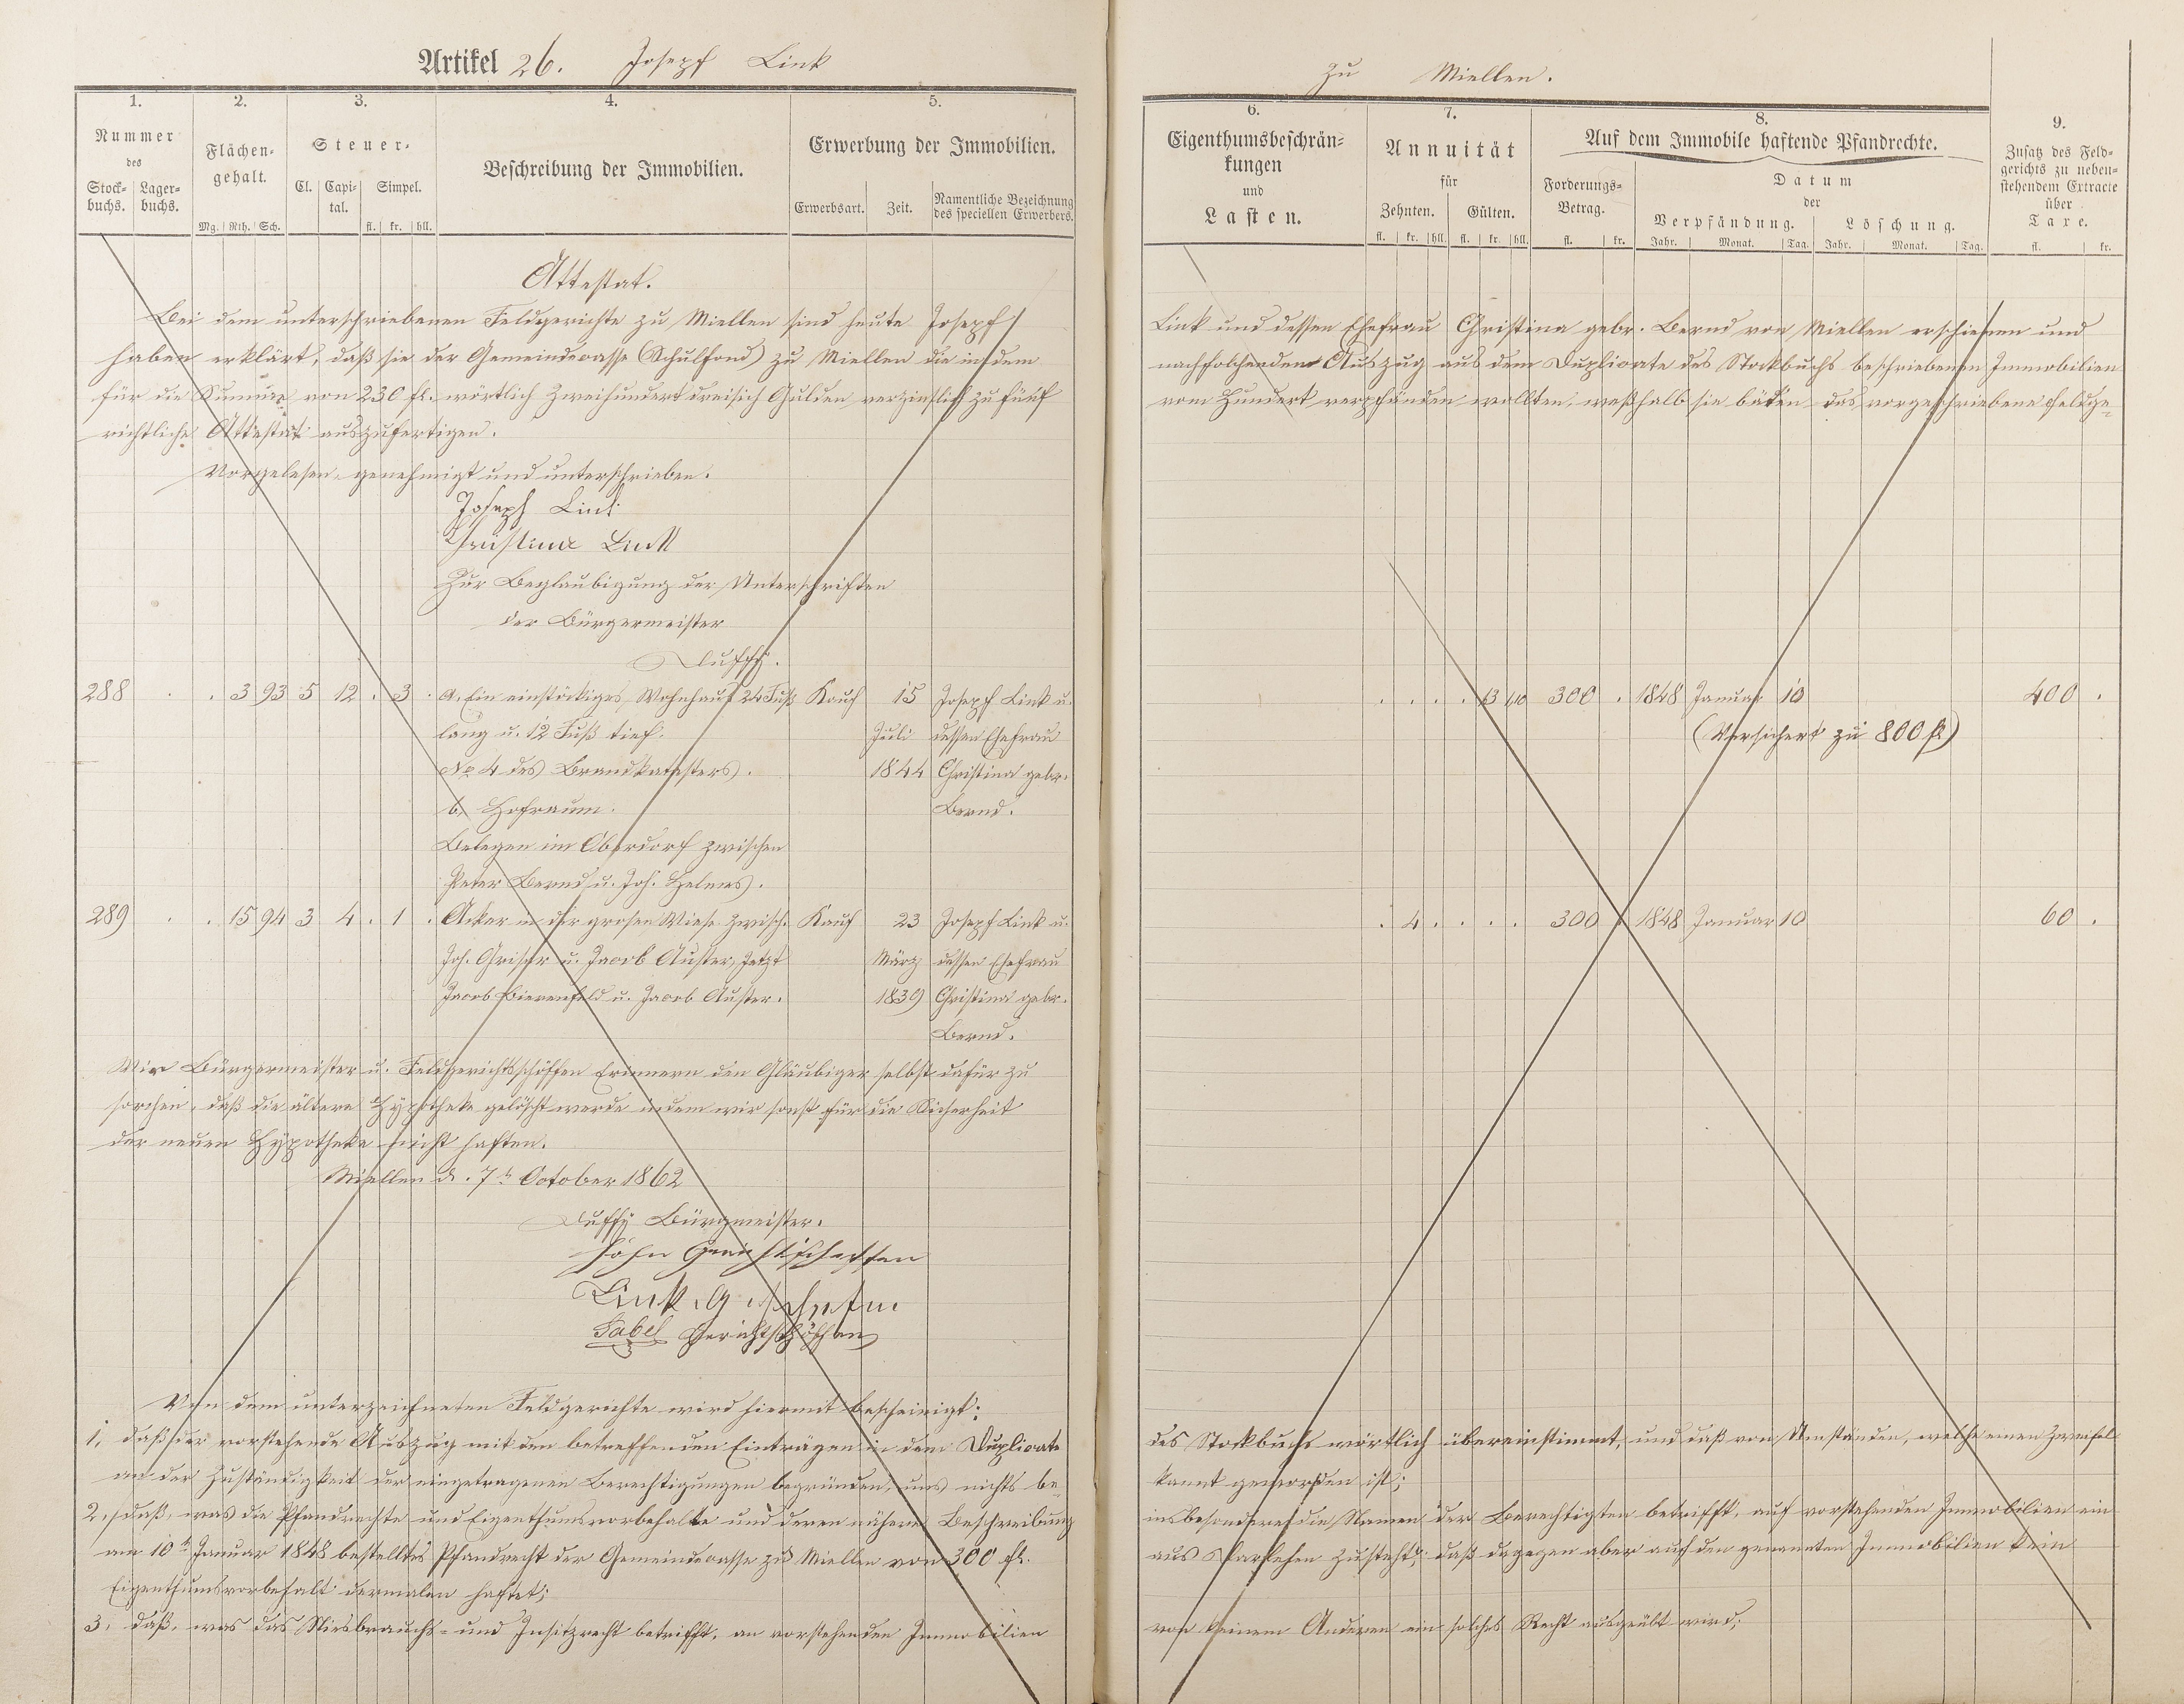 Artikel 26. Josepf Link
zu Miellen.
1. 2. 3. 4. 5.
Nummer des
Stock=buchs. Lager=buchs.
Flächen=gehalt.
Mg. Rth. Sch.
Steuer=
Cl. Capi=tal. Simpel.
fl. kr. hll.
Beschreibung der Immobilien.
Erwerbung der Immobilien.
Erwerbsart. Zeit. Namentliche Bezeichnung des speciellen Erwerbers.
6. 7. 8. 9.
Eigenthumsbeschrän=
kungen
und
Lasten.
Annuität
für
Zehnten. Gülten.
fl. kr. hll. fl. kr. hll.
Auf dem Immobile haftende Pfandrechte.
Forderungs=
Betrag.
fl. kr.
Datum
der
Verpfändung. Löschung.
Jahr. Monat. Tag. Jahr. Monat. Tag.
Zusatz des Feld=
gerichts zu neben=
stehendem Extracte
über
Taxe.
fl. kr.
Attestat.
Bei dem unterschriebenen Feldgerichte zu Miellen sind heute Josepf Link und dessen Ehefrau Christina gebr. Bernd von Miellen erschienen und
haben erklärt, daß sie der Gemeindecasse (Schulfond) zu Miellen die in dem nachfolchenden Auszug aus dem Duplicate des Stockbuchs beschriebenen Immobilien
für die Summe von 230 fl. wörtlich Zweihundert dreisich Gulden verzinslich zu fünf vom Hundert verpfänden wollten, weßhalb sie bäten das vorgeschriebene Feldge=
richtliche Attestat auszufertigen.
Vorgelesen, genehmigt und unterschrieben.
Joseph Link
Christina Link
Zur Beglaubigung der Unterschriften
der Bürgermeister
Duffy.
288 . . 3 93 5 12 . 3 . a. Ein einstöckiges Wohnhaus 24 Fuß Kauf 15 Josepf Link u. . . . . 13 300 . 1848 Januar 10 400 .
lang u. 12 Fuß tief. Juli dessen Ehefrau (Versichert zu 800 fl)
No 4 des Brandkatasters. 1844 Christina gebr.
b. Hofraum. Bernd.
Belegen im Oberdorf zwischen
Peter Bernd u. Joh. Helmes.
289 . . 15 94 3 4 . 1 . Acker in der grosen Wiese zwisch. Kauf 23 Josepf Link u. . 4 . . . . 300 1848 Januar 10 60 .
Joh. Griser u. Jacob Auster, Jetzt März dessen Ehefrau
Jacob Bierenfeld u. Jacob Auster. 1839 Christina gebr.
Bernd.
Wir Bürgermeister u. Feldgerichtsschöffen Erinnern den Gläubiger selbst dafür zu
sorchen, daß die ältere Hypotheke gelöscht werde indem wir sonst für die Sicherheit
der neuen Hypotheke nicht haften.
Miellen d. 7t October 1862
Duffy Bürgmeister.
Höhn Gerichtscheffen
Link
Gabel Gerichtschöffen
Von dem unterzeichneten Feldgerichte wird hiermit bescheinigt:
1, daß der vorstehende Auszug mit den betreffenden Einträgen in dem Duplicate des Stockbuchs wörtlich übereinstimmt, und daß von Umständen, welche einen Zweifel
an der Zuständigkeit der eingetragenen Berechtigungen begründen, uns nichts be= kannt geworden ist;
2, daß, was die Pfandrechte und Eigenthumsvorbehalte und deren nähere Beschreibung insbesondere die Namen der Berechtigten betrifft, auf vorstehenden Immobilien ein
am 10t Januar 1848 bestelltes Pfandrecht der Gemeindecasse zu Miellen von 300 fl. aus Darlehen zusteht, daß dagegen aber auf den genannten Immobilien kein
Eigenthumsvorbehalt dermalen haftet;
3, daß, was das Niesbrauchs= und Insitzrecht betrifft, an vorstehenden Immobilien von keinem Anderen ein solches Recht ausgeübt wird;